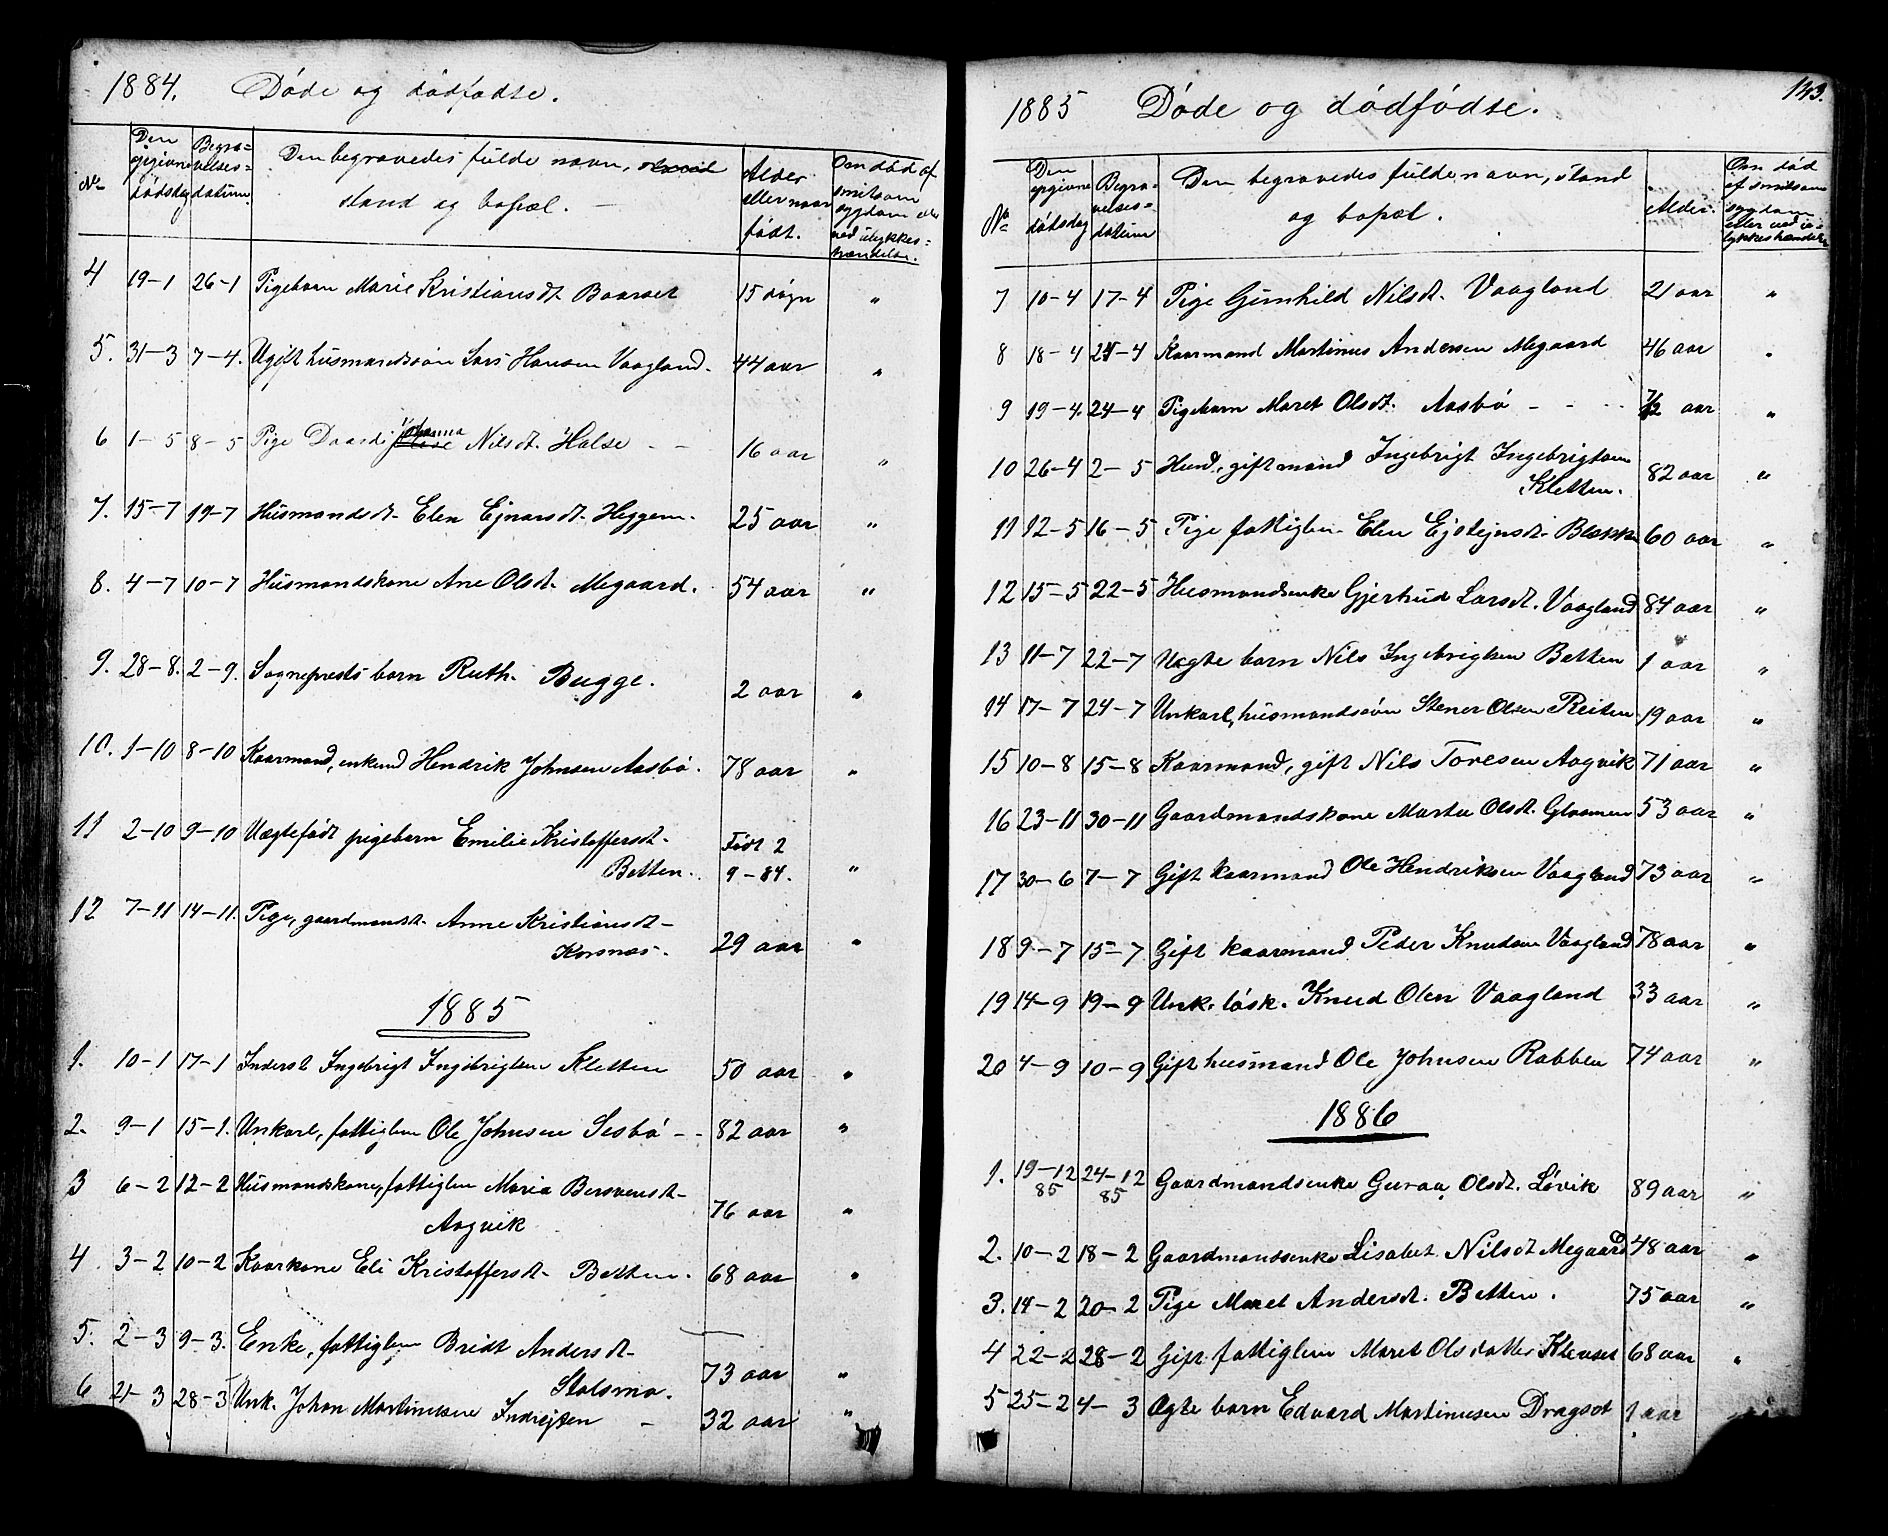 1884. Døde og dødfødte.
No Den opgivne dødsdag Begravelses=datum. Den begravedes fulde navn, stand og bopæl. Alder eller naar født. Om død af smitsom sygdom eller ved ulykkes=hændelse.
4 19-1 26-1 Pigebarn Marie Kristiansdt. Baarset 15 døgn "
5. 31-3 7-4. Ugift husmandssøn Lars Hansen Vaagland. 44 aar "
6 1-5 8-5 Pige Dordi Johanna Nilsdt. Halse - - 16 aar "
7. 15-7 19-7 Husmandsdt. Elen Ejnarsdt. Heggem. 25 aar "
8. 4-7 10-7 Husmandskone Ane Olsdt. Megaard. 54 aar "
9. 28-8. 2-9. Sogneprests barn Ruth. Bugge. 2 aar "
10. 1-10 8-10 Kaarmand, enkemd Hendrik Johnsen Aasbø. 78 aar "
11 2-10 9-10 Uægtefødt pigebarn Emilie Kristoffersdt. Født 2
Betten. 9-84. "
12 7-11 14-11. Pige, gaardmandsdt. Anne Kristiansdt-
Korsnæs. 29 aar "
1885
1. 10-1 17-1 Inderst Ingebrigt Ingebrigtsen Kletten 50 aar "
2. 9-1 15-1. Unkarl, fattiglem Ole Johnsen Sesbø - - 82 aar "
3 6-2 12-2 Husmandskone, fattiglem Maria Bersvensdt-
Aagvik 76 aar "
4 3-2 10-2 Kaarkone Eli Kristoffersdt- Betten. 68 aar "
5. 2-3 9-3. Enke, fattiglem Bridt Andersdt-
Stolsmo. 73 aar "
6 21-3 28-3 Unk. Johan Martinusen Indrejten - 32 aar "
143.
1885 Døde og dødfødte.
No Den opgivne dødsdag Begravelses=datum Den begravedes fulde navn, stand og bopæl. Alder. Om død af smitsom sygdom eller ved ulykkeshændelse
7 10-4 17-4 Pige Gunhild Nilsdt. Vaagland 21 aar "
8 18-4 24-4 Kaarmand Martinus Andersen Megaard 46 aar "
9 19-4. 24-4 Pigebarn Maret Olsdt. Aasbø - - - 1/2 aar "
10 26-4 2-5 Husd. gift mand Ingebrigt Ingebrigtsen
Kletten. 82 aar "
11 12-5 16-5 Pige fattiglem Elen Ejstejnsdt. Blekken 60 aar "
12 15-5 22-5 Husmandsenke Gjertrud Larsdt. Vaagland 84 aar "
13 11-7 22-7 Uægte barn Nils Ingebrigtsen Betten 1 aar "
14 17-7 24-7 Unkarl, husmandssøn Stener Olsen Reiten 19 aar "
15 10-8 15-8 Kaarmand, gift Nils Toresen Aagvik 71 aar "
16 23-11 30-11 Gaardmandskone Marta Olsdt. Glaamen 53 aar "
17 30-6 7-7 Gift kaarmand Ole Hendriksen Vaagland 73 aar "
18 9-7 15-7 Gift kaarmand Peder Knudsen Vaagland 78 aar "
19 14-9 19-9 Unk. løsk. Knud Olsn Vaagland 33 aar "
20 4-9 10-9 Gift husmand Ole Johnsen Rabben 74 aar "
1886
1. 19-12 85 24-12 85 Gaardmandsenke Guraa Olsdt. Løvik 89 aar "
2. 10-2 18-2 Gaardmandsenke Lisabet Nilsdt Megaard 48 aar "
3. 14-2 20-2 Pige Maret Andersdt. Betten. 75 aar "
4 22-2 28-2 Gift fattiglem Maret Olsdatter Klevset 68 aar "
5 25-2 4-3 Ægte barn Edvard Martinusen Dragset 1 aar